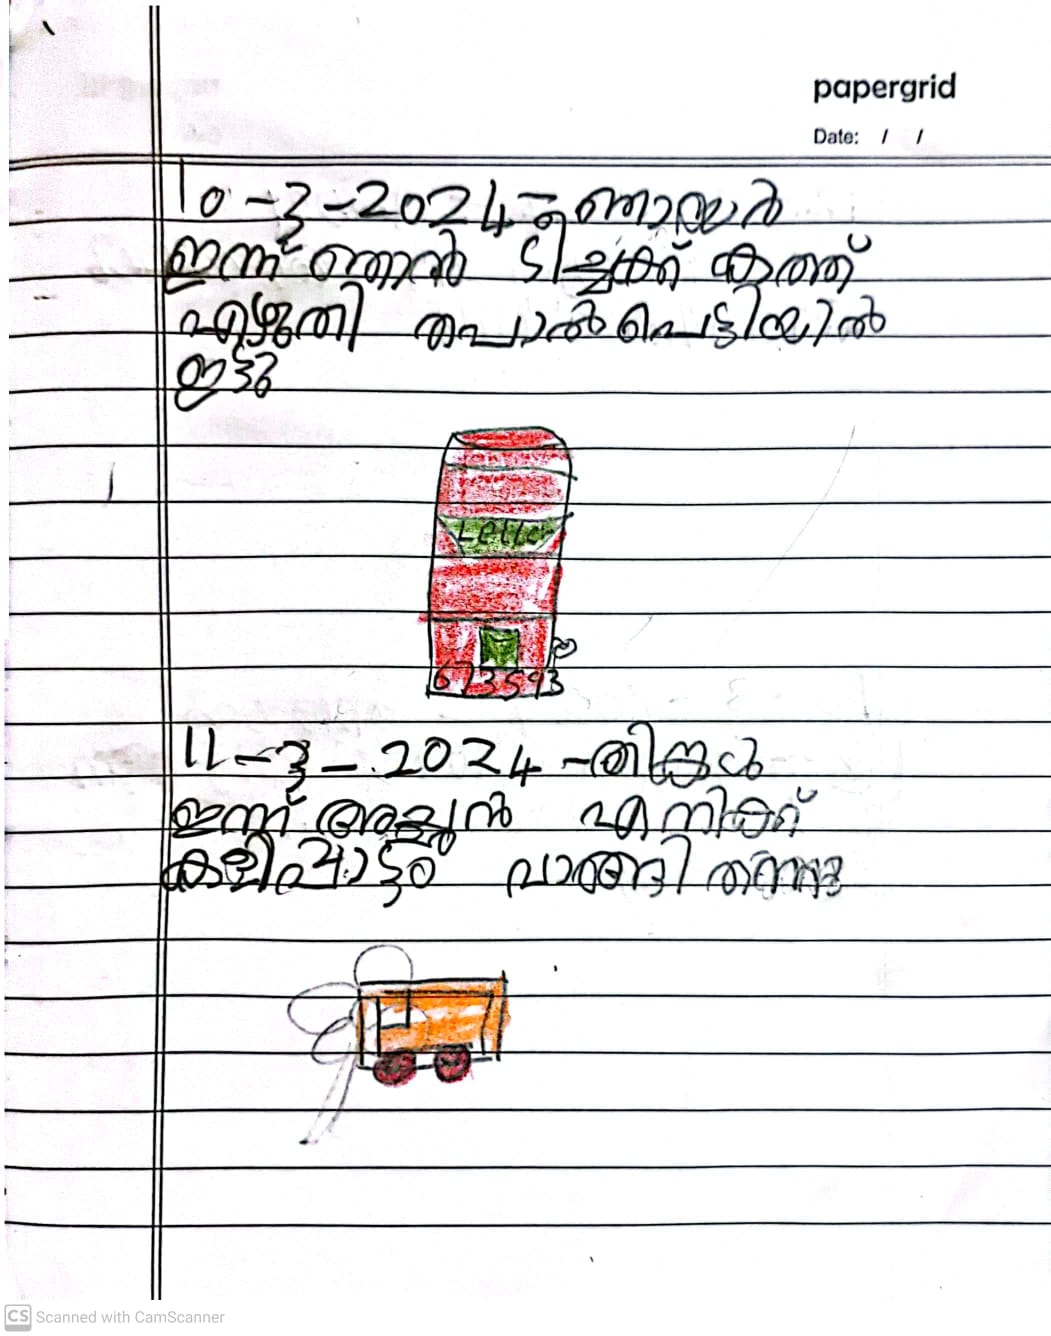 papergrid
Date: / /
10-3-2024-ഞായർ
ഇന്ന് ഞാൻ ടീച്ചർക്ക് കത്ത്
എഴുതി പോസ്റ്റ്പെട്ടിയിൽ
ഇട്ടു
Letter
673593
11-3-2024-തിങ്കൾ
ഇന്ന് അച്ഛൻ എനിക്ക്
കളിപ്പാട്ടം വാങ്ങി തന്നു
CS Scanned with CamScanner